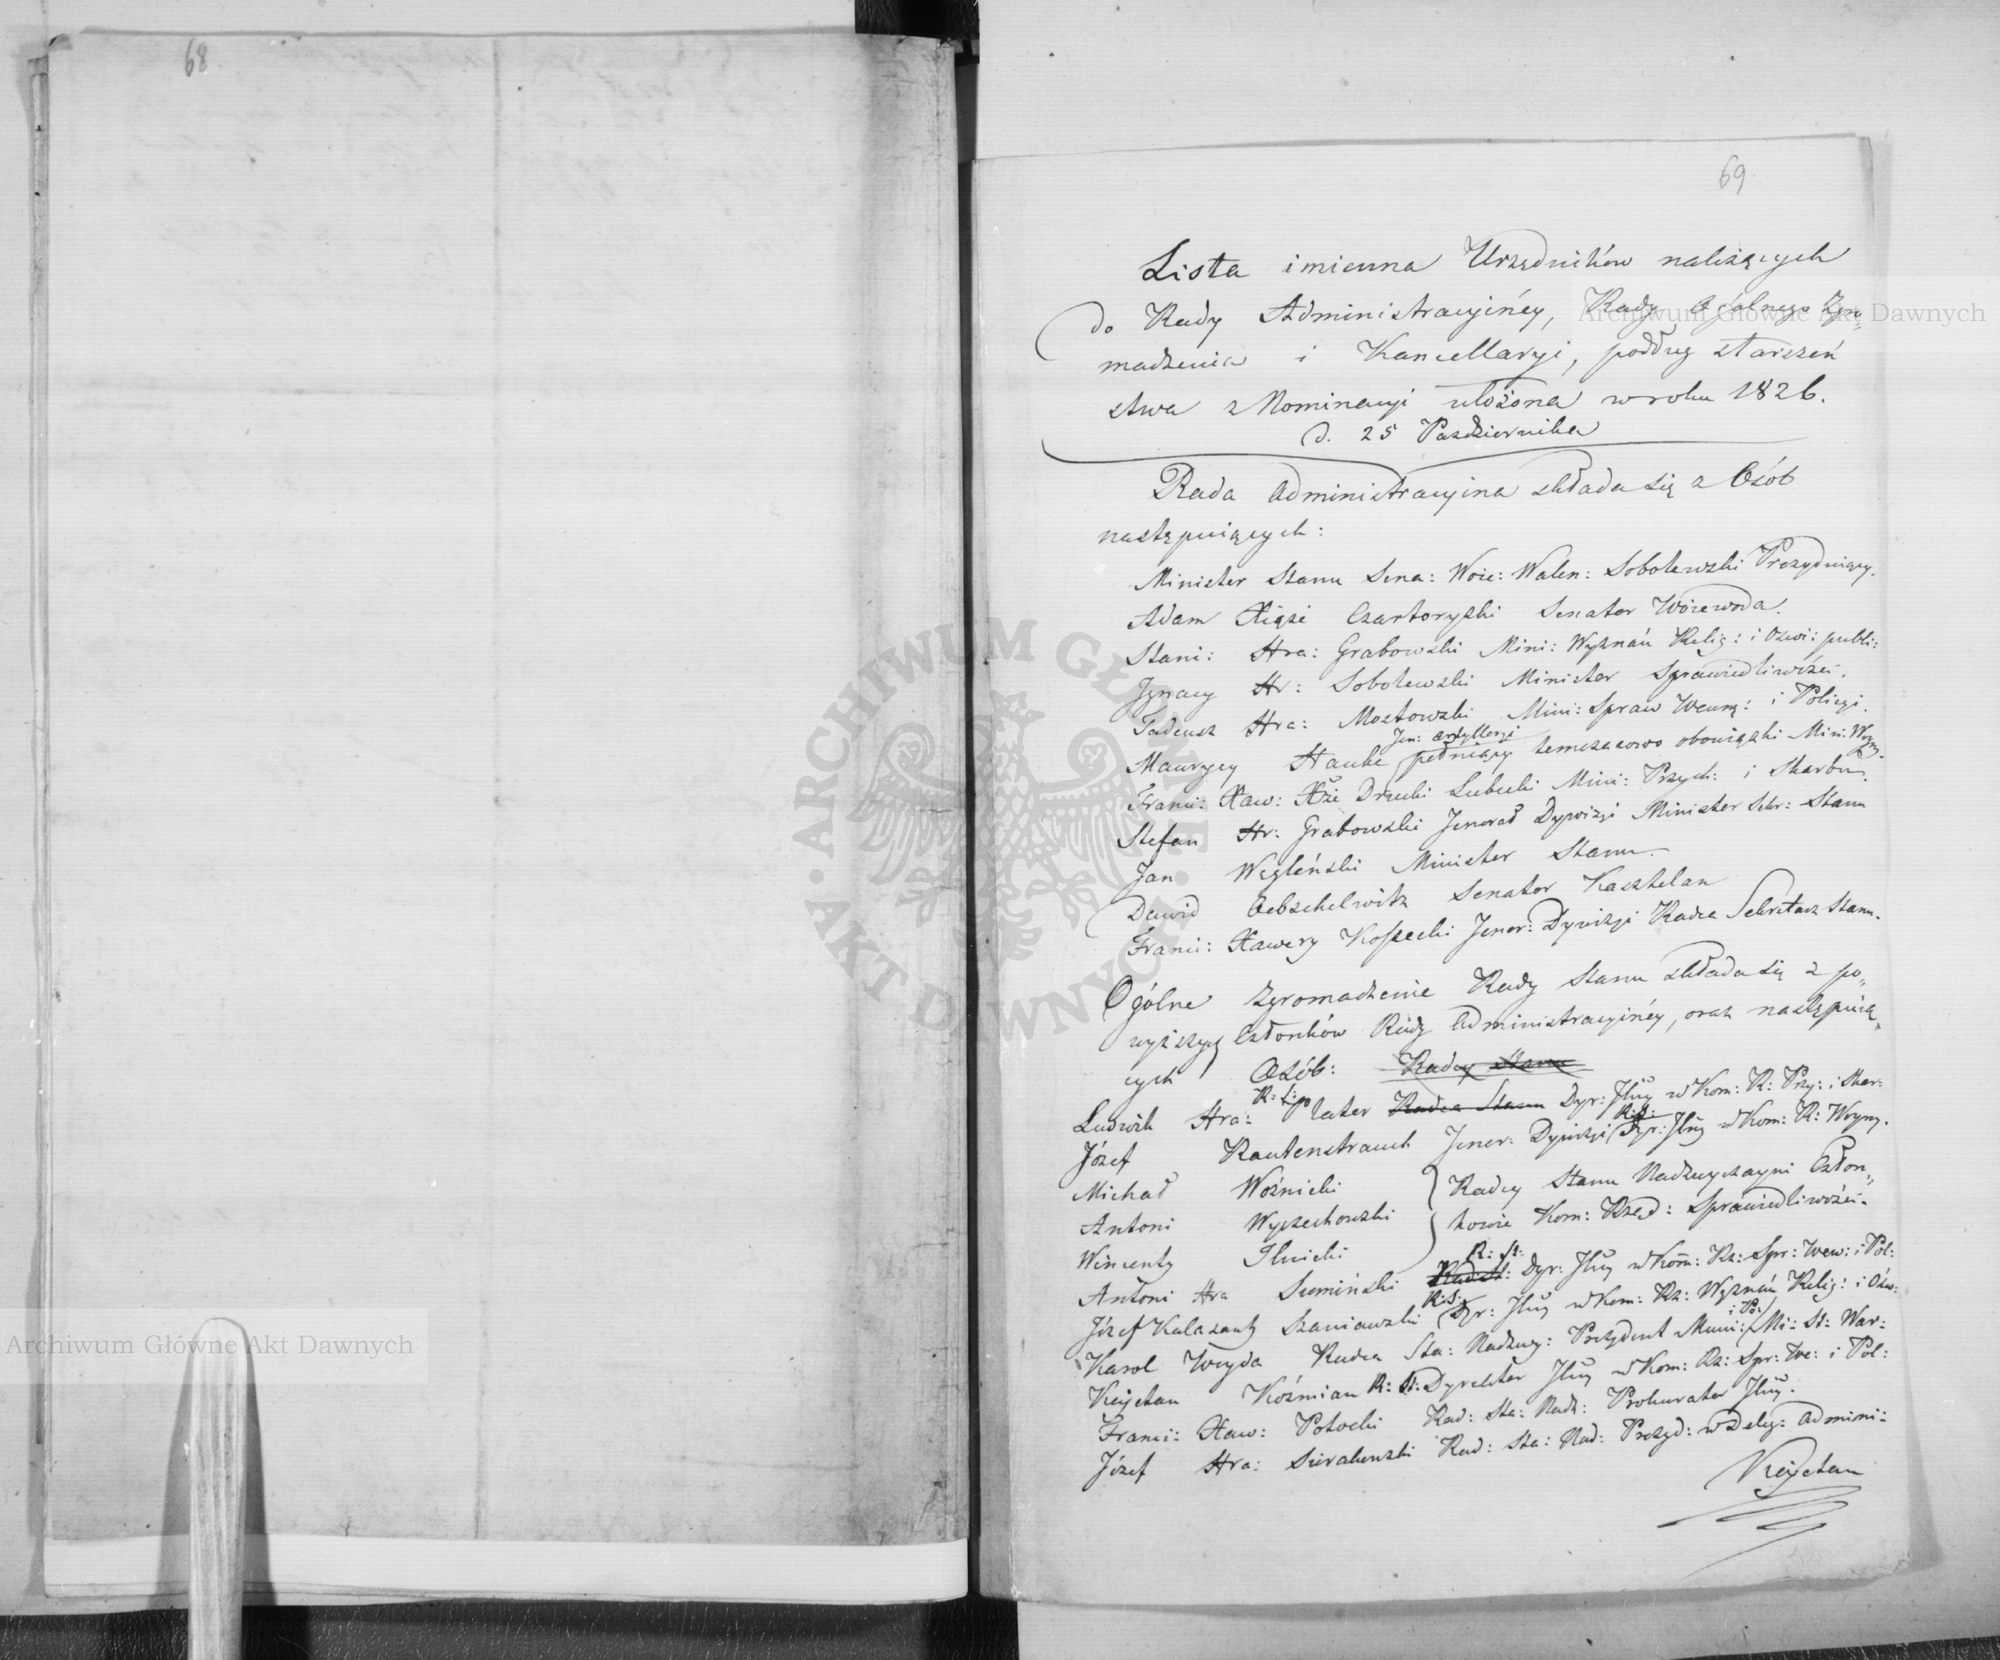 68
69
Lista imienna Urzędników należących
do Rady Administracyińey, Rady Ogólnego Zgro„
madzenia i Kancellaryi, podług starszeń
stwa z Nominacyi ułożona w roku 1826.
d. 25 Października
Rada Administracyina składa się z Osób
następuiących:
Minister Stanu Sena: Woie: Walen: Sobolewski Prezyduiący.
Adam Xiąże Czartoryski Senator Woiewoda.
Stani: Hra: Grabowski Mini: Wyznań Relig: i Oswi: publi:
Jgnacy Hr: Sobolewski Minister Sprawiedliwości.
Tadeusz Hra: Mostowski Mini: Spraw Wewnę: i Policyi.
Jen: Artylleryi
Maurycy Hauke pełniący temczasowo obowiązki Min: Woyny.
Franci: Xaw: Xże Drucki Lubecki Mini: Przych: i Skarbu.
Stefan Hr: Grabowski Jenerał Dywizyi Minister Sekr: Stanu
Jan Węgleński Minister Stanu.
Dawid Oebschelwitz Senator Kasztelan
Franci: Xawery Kossecki Jener: Dywizyi Radca Sekretarz Stanu.
Ogólne Zgromadzenie Rady Stanu składa się z po„
wyższych Członków Rady Administracyińey, oraz następuią„
cych Osób: Radcy Stanu
R: S:
Ludwik Hra: Plater Radca Stanu Dyr: Jlny w Kom: R: Przy: i Skar:
R: S:
Józef Rautenstrauch Jener: Dywizyi Dyr: Jlny w Kom: R: Woyny.
Michał Woźnicki Radcy Stanu Nadzwyczayni Człon„
Antoni Wyczechowski kowie Kom: Rząd: Sprawiedliwości.
Wincenty Ilnicki
R: St:
Antoni Hra Sumiński Rad: St: Dyr: Jlny w Kom: Rz: Spr: Wew: i Pol:
R: S:
Józef Kalasanty Szaniawski Dyr: Jlny w Kom: Rz: Wyznań Relig: i Ośw:
i Po:
Karol Woyda Radca Sta: Nadzwy: Prezydent Muni: Mi: St: War:
Kajetan Koźmian R: St: Dyrektor Jlny w Kom: Rz: Spr: We: i Pol:
Franci: Xaw: Potocki Rad: Sta: Nadz: Prokurator Jlny.
Józef Hra: Sierakowski Rad: Sta: Nad: Prezyd: w Deleg: Admini:
Kajetan
Archiwum Główne Akt Dawnych
Archiwum Główne Akt Dawnych
ARCHIWUM GŁÓWNE AKT DAWNYCH